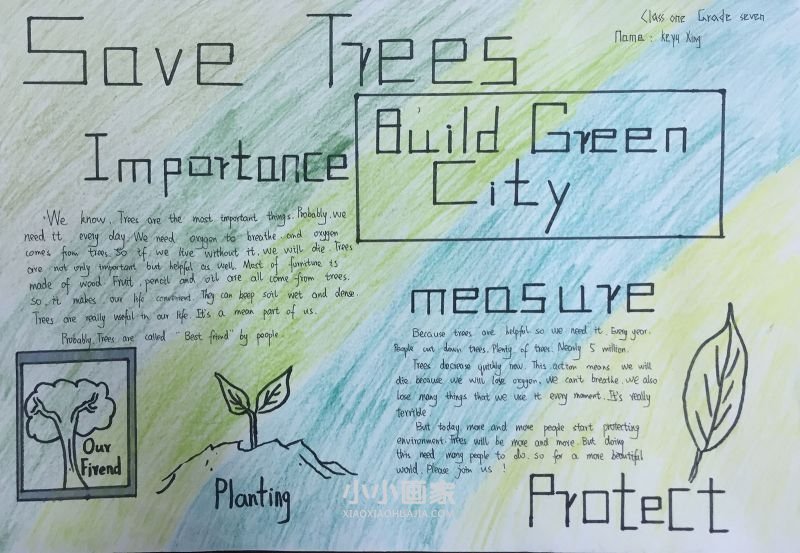 Save Trees
Class one Grade seven
Name: Keyu Xing
Build Green
City
Importance
We know, Trees are the most important things. Probably, we
need it every day. We need oxygen to breathe. and oxygen
comes from trees. So if we live without it, we will die. Trees
are not only important but helpful as well. Most of furniture is
made of wood. Fruit, pencil and oil are all come from trees.
So, it makes our life convinent. They can keep soil wet and dense.
Trees are really useful in our life. It's a mean part of us.
Probably, Trees are called "Best friend" by people.
measure
Because trees are helpful so we need it. Every year.
People cut down trees. Plenty of trees. Nearly 5 million.
Trees decrease quickly now. This action means we will
die. because we will lose oxygen. We can't breathe. We also
lose many things that we use it every moment. It's really
terrible.
But today, more and more people start protecting
environment. Trees will be more and more. But doing
this need many people to do. so for a more beautiful
world. Please join us !
Our
Firend
Planting
Protect
小小画家
XIAOXIAOHUAJIA.COM